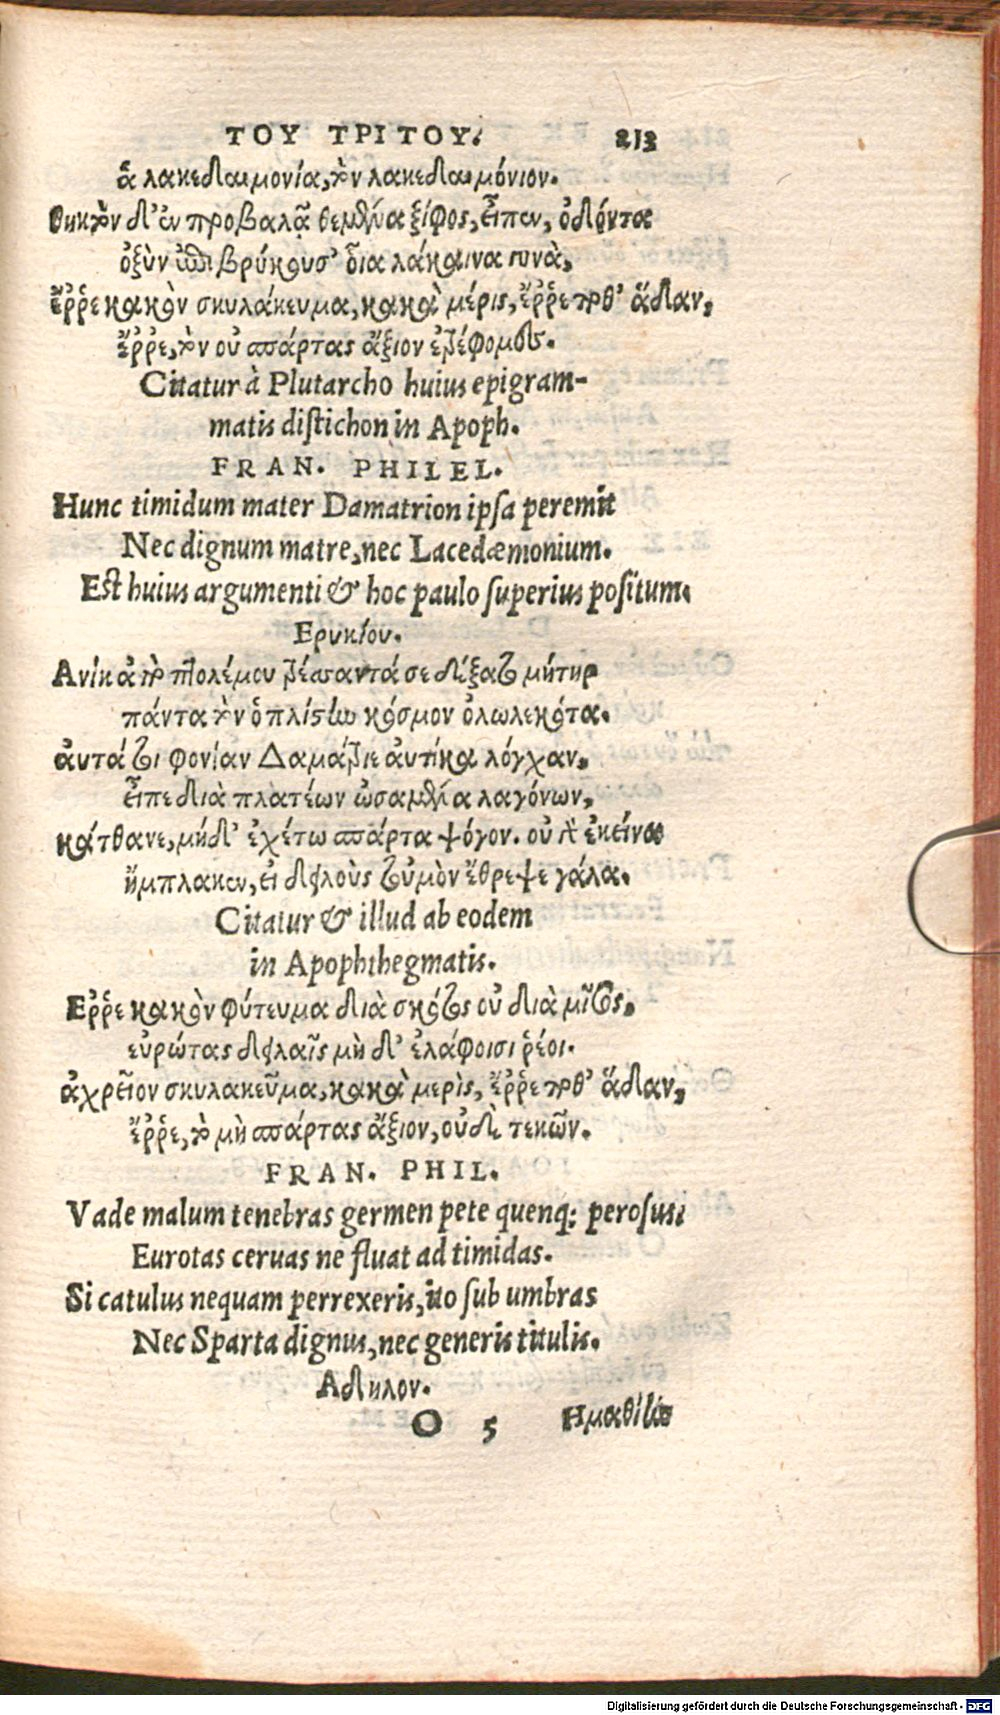 ΤΟΥ ΤΡΙΤΟΥ. 213
ἁ λακεδαιμονία, τὸν λακεδαιμόνιον.
Θηκτὸν δ' ἐν προβαλᾷ θεμένα ξίφος, εἶπεν, ὀδόντα
ὀξὺν ἐπιβρύκουσ' οἷα λάκαινα γυνὰ,
ἔῤῥε κακὸν σκυλάκευμα, κακὰ μέρις, ἔῤῥε ποθ' ἅδαν,
ἔῤῥε, τὸν οὐ σπάρτας ἄξιον ἐτρέφομεν.
Citatur à Plutarcho huius epigram-
matis distichon in Apoph.
FRAN. PHILEL.
Hunc timidum mater Damatrion ipsa peremit
Nec dignum matre, nec Lacedæmonium.
Est huius argumenti & hoc paulo superius positum.
Ερυκίου.
Ανίκ' ἀπὸ πτολέμου τρέσαντά σε δέξατο μήτηρ
πάντα τὸν ὁπλίστην κόσμον ὀλωλεκότα.
αὐτά τοι φονίαν Δαμάτριε αὐτίκα λόγχαν,
εἶπε διὰ πλατέων ὠσαμένα λαγόνων,
κάτθανε, μήδ' ἐχέτω σπάρτα ψόγον. οὐ γὰρ ἐκείνα
ἤμπλακεν, εἰ δειλοὺς τοὐμὸν ἔθρεψε γάλα.
Citatur & illud ab eodem
in Apophthegmatis.
Εῤῥε κακὸν φύτευμα διὰ σκότος οὗ διὰ μῖσος,
εὐρώτας δειλαῖς μὴ δ' ἐλάφοισι ῥέοι.
ἀχρεῖον σκυλακεῦμα, κακὰ μερὶς, ἔῤῥε ποθ' ἅδαν,
ἔῤῥε, τὸ μὴ σπάρτας ἄξιον, οὐδὲ τεκῶν.
FRAN. PHIL.
Vade malum tenebras germen pete quenq; perosus:
Eurotas ceruas ne fluat ad timidas.
Si catulus nequam perrexeris, ito sub umbras
Nec Sparta dignus, nec generis titulis.
Αδηλον.
O 5 Ημαθίδας
Digitalisierung gefördert durch die Deutsche Forschungsgemeinschaft - DFG